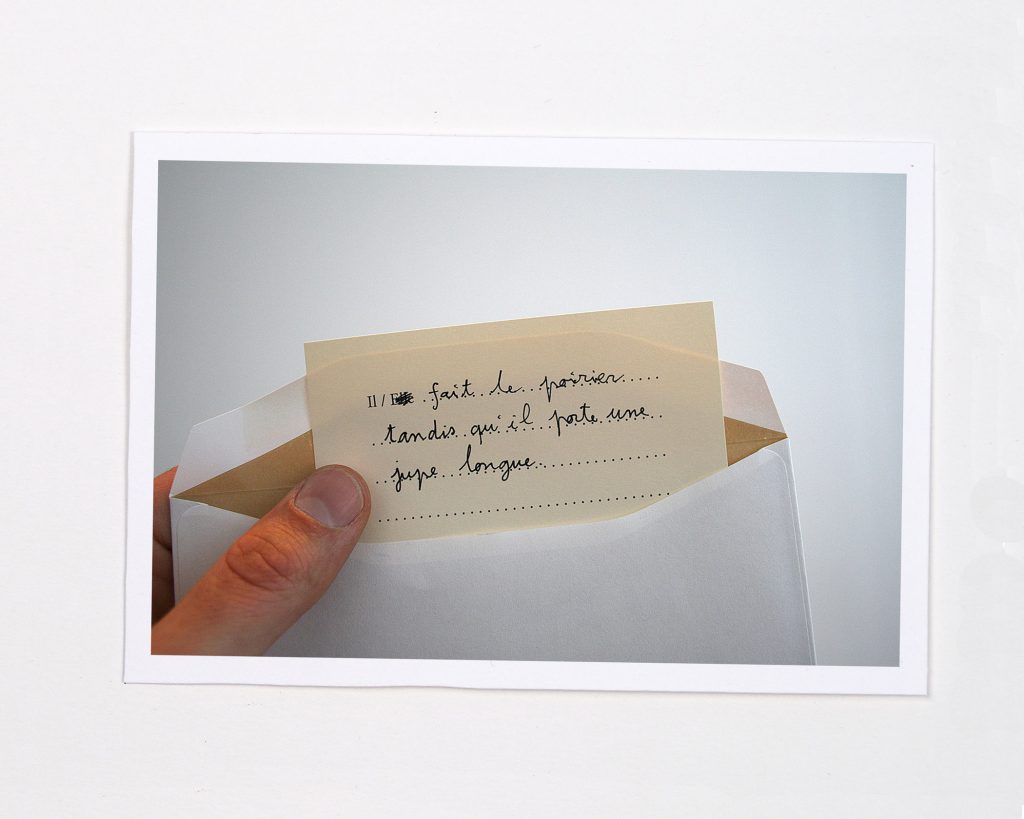 Il / fait le poirier
tandis qu'il porte une
jupe longue.